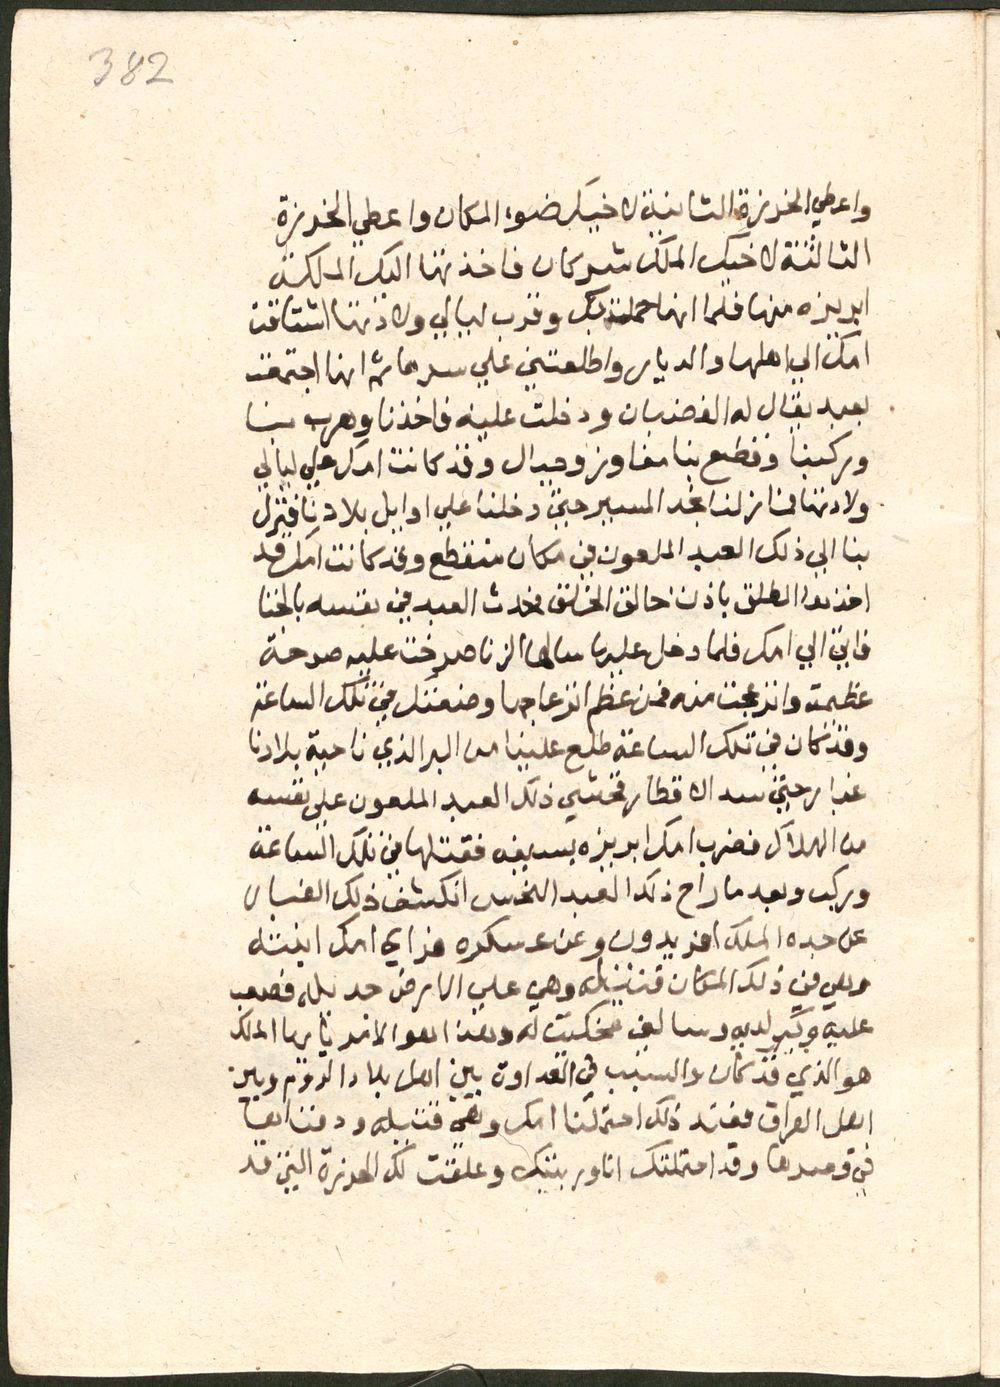 382
واعطي الخرزة الثانية لاخيك ضوء المكان واعطي الخرزة
الثالثة لاخيك الملك شركان فاخذتها اليك الملكة
ابريزه منها فلما انها حملت بك وقرب ليالي ولادتها اشتاقت
امك الي اهلها والديار واطلعتني علي سرها ثم انها اجتمعت
بعبد يقال له الغضبان ودخلت عليه فاخذنا وهرب بنا
وركبنا وقطع بنا مفاوز وجبال وقد كانت امك علي ليالي
ولادتها فما زلنا نجد المسير حتي دخلنا علي اوايل بلادنا فنزل
بنا الي ذلك العبد الملعون في مكان منقطع وقد كانت امك قد
اخذها الطلق باذن خالق الخلق فحدث العبد في نفسه بالخنا
فاتي الي امك فلما دخل عليها سالها الزنا صرخت عليه صرخة
عظيمة وانزعجت منه فمن عظم انزعاجها وضعتك في تلك الساعة
وقد كان في تلك الساعة طلع علينا من البر الذي ناحية بلادنا
غبار حتي سد الاقطار فخشي ذلك العبد الملعون علي نفسه
من الهلاك فضرب امك ابريزه بسيفه فقتلها في تلك الساعة
وركب وبعد ما راح ذلك العبد النحس انكشف ذلك الغبار
عن جده الملك افريدون وعن عسكره فراي امك ابنته
وهي في ذلك المكان قتيله وهي علي الارض جديله فصعب
عليه وكبر لديه وسالني فحكيت له وهذا هو الامر يا ايها الملك
هو الذي قد كان والسبب في العداوة بين اهل بلاد الروم وبين
اهل العراق فعند ذلك احتملنا امك وهي قتيله ودفناها
في قصرها وقد احتملتك انا وربيتك وعلقت لك الخرزة التي قد